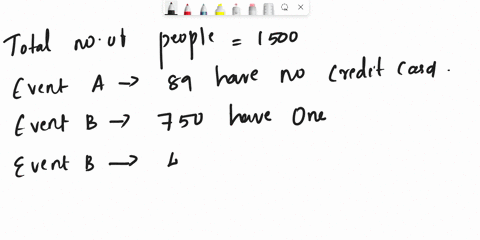 Total no. of people = 1500
Event A → 89 have no Credit Card.
Event B → 750 have One
Event B → 4